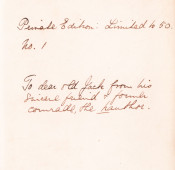 Private Edition: Limited to 50.
No. 1
To dear old Jack from his
sincere friend & former
comrade, the Author.